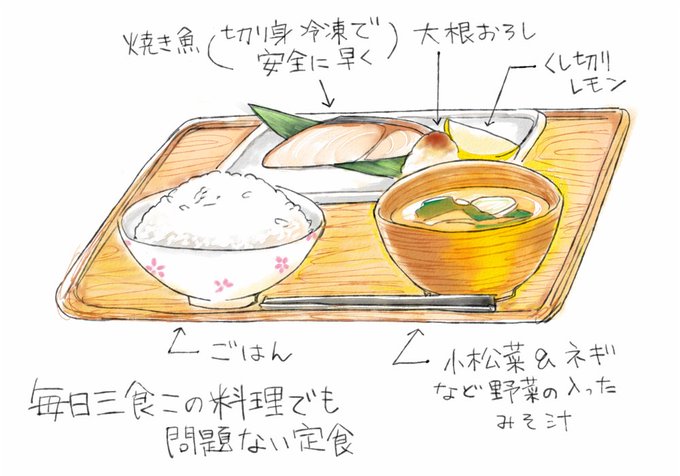 焼き魚(切り身 冷凍で
安全に早く)
大根おろし
くし切り
レモン
ごはん
小松菜&ネギ
など野菜の入った
みそ汁
毎日三食この料理でも
問題ない定食